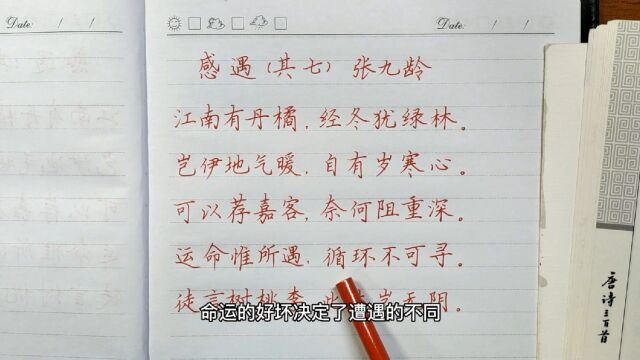 Date: / /
Date: / /
感遇(其七) 张九龄
江南有丹橘,经冬犹绿林。
岂伊地气暖,自有岁寒心。
可以荐嘉客,奈何阻重深。
运命惟所遇,循环不可寻。
徒言树桃李,此 无阴。
命运的好坏决定了遭遇的不同
唐诗三百首